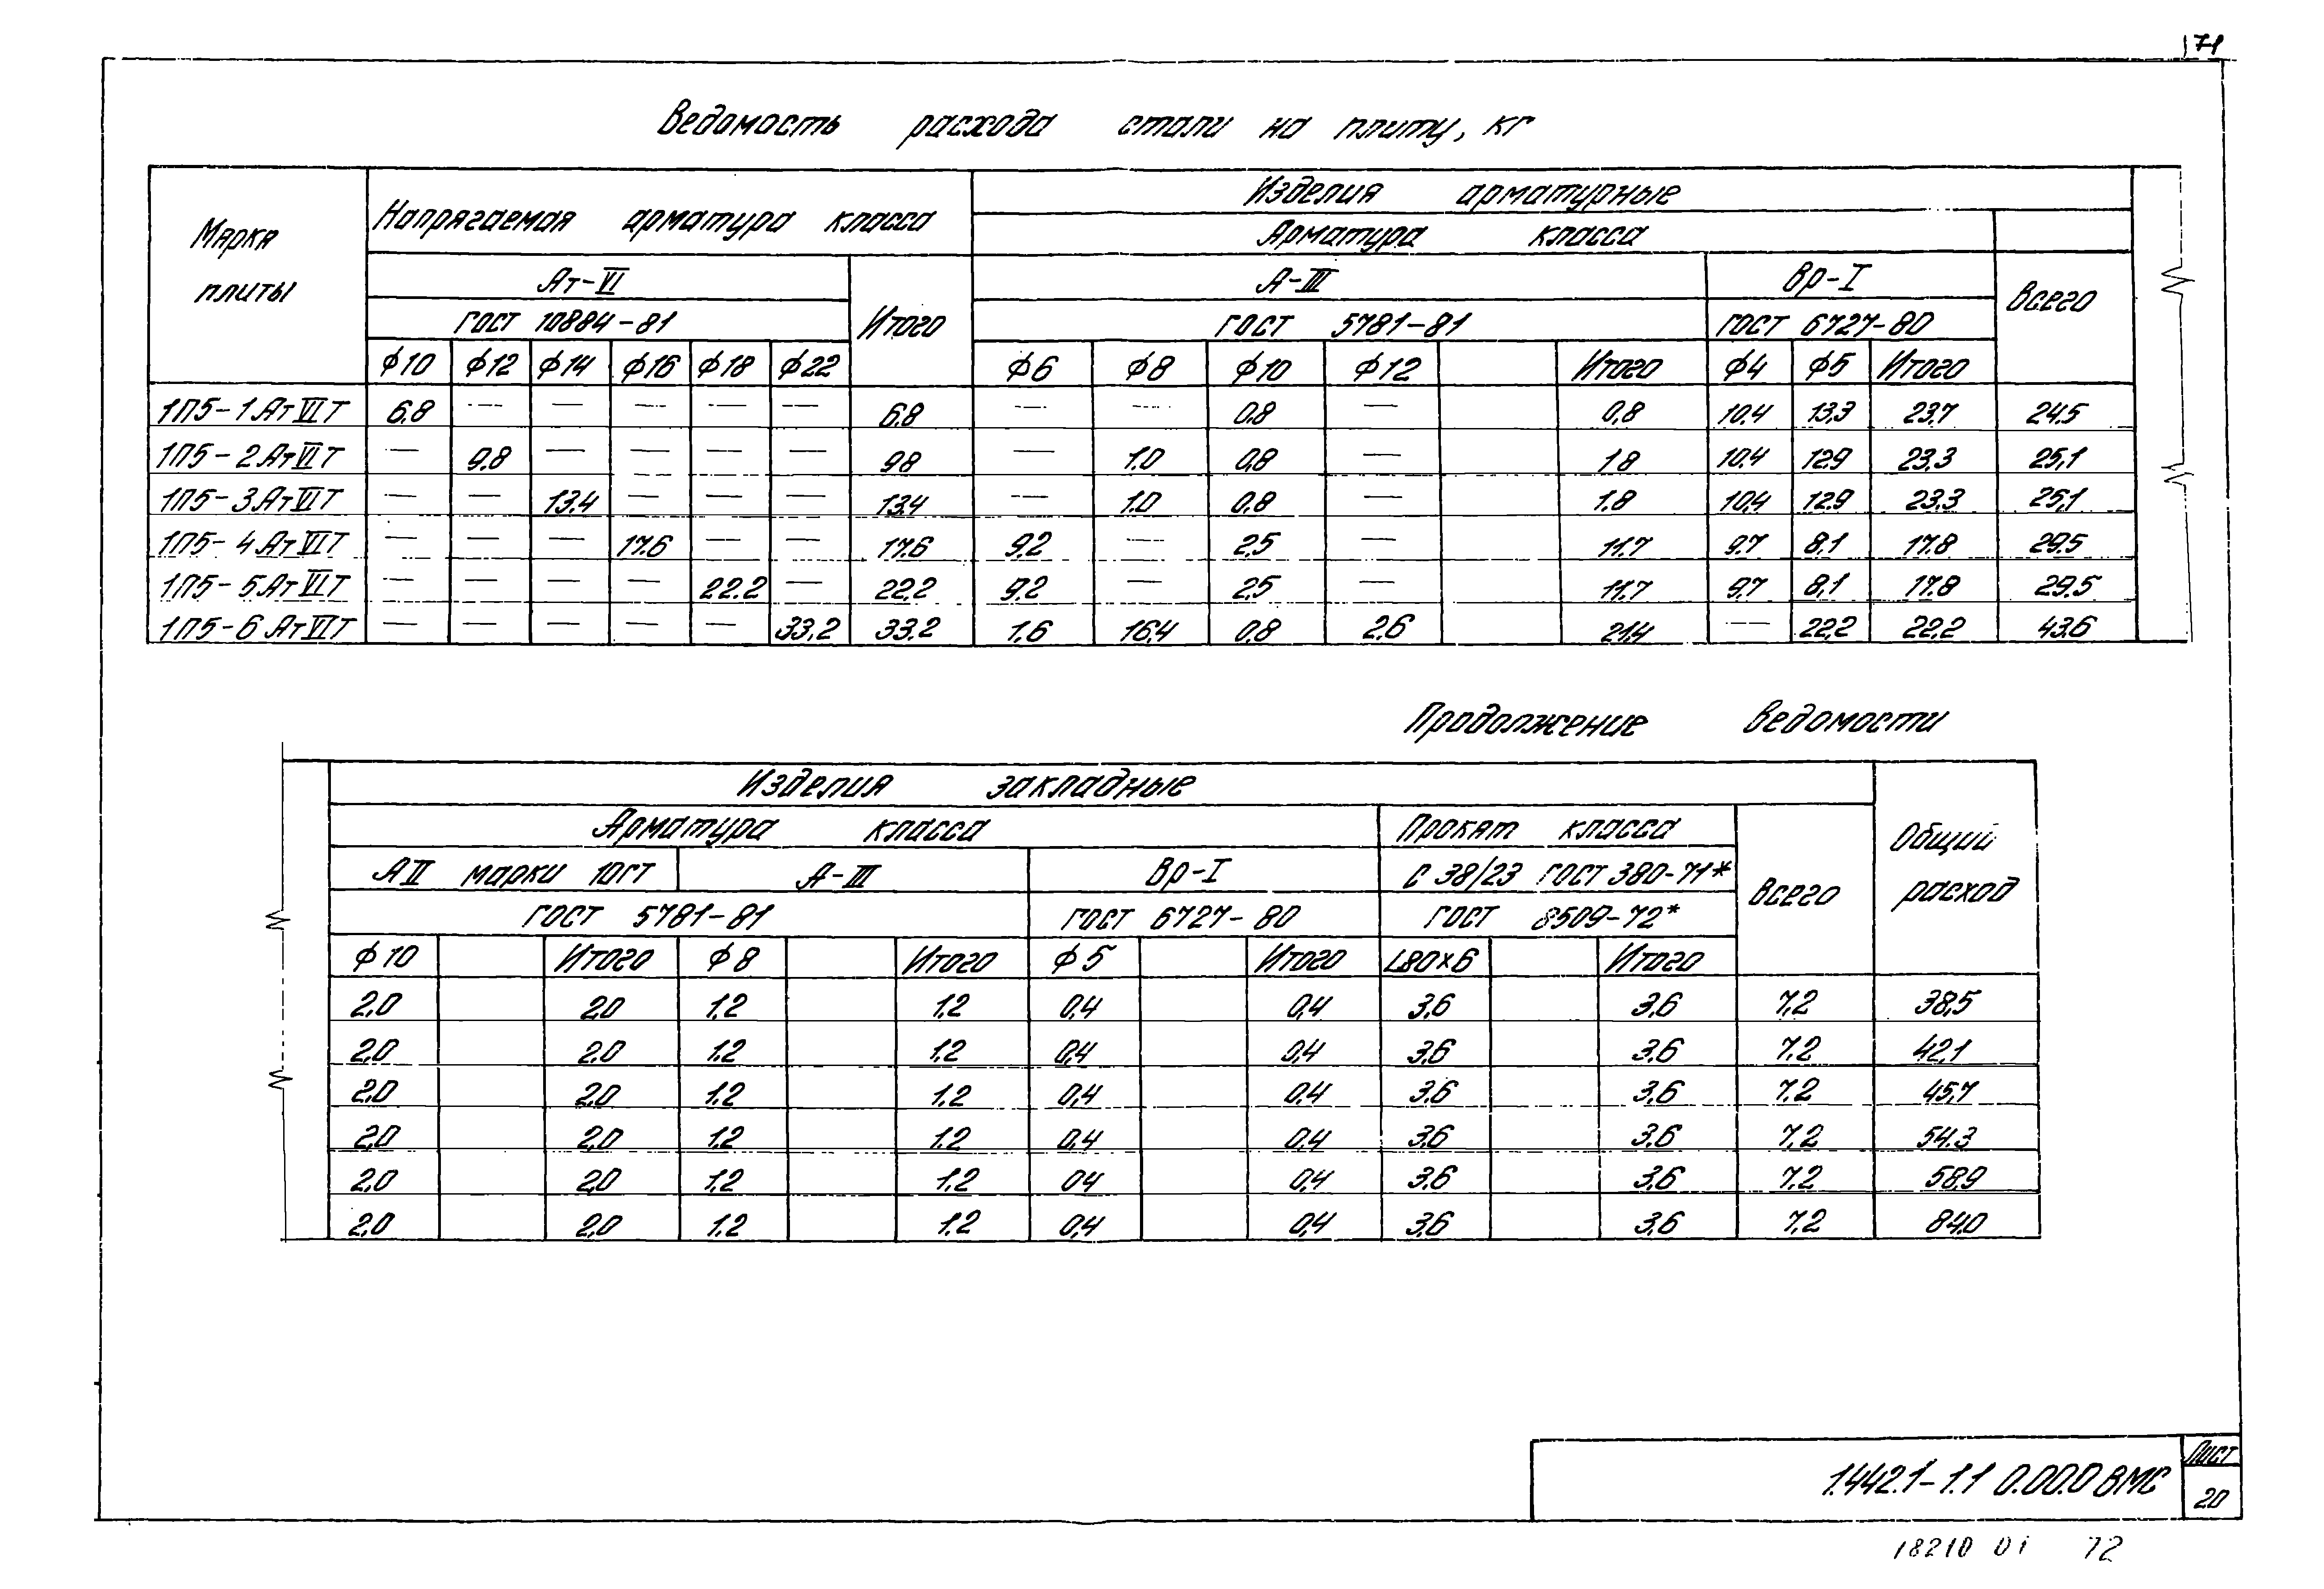 71
Ведомость расхода стали на плиту, кг
Марка плиты
Напрягаемая арматура класса
Изделия арматурные
Арматура класса
Ат-VI
Итого
А-III
Вр-I
Всего
ГОСТ 10884-81
ГОСТ 5781-81
ГОСТ 6727-80
ф10 ф12 ф14 ф16 ф18 ф22 ф6 ф8 ф10 ф12 Итого ф4 ф5 Итого
1П5-1АтVIТ 6,8 — — — — — 6,8 — — 0,8 — 0,8 10,4 13,3 23,7 24,5
1П5-2АтVIТ — 9,8 — — — — 9,8 — 1,0 0,8 — 1,8 10,4 12,9 23,3 25,1
1П5-3АтVIТ — — 13,4 — — — 13,4 — 1,0 0,8 — 1,8 10,4 12,9 23,3 25,1
1П5-4АтVIТ — — — 17,6 — — 17,6 9,2 — 2,5 — 11,7 9,7 8,1 17,8 29,5
1П5-5АтVIТ — — — — 22,2 — 22,2 9,2 — 2,5 — 11,7 9,7 8,1 17,8 29,5
1П5-6АтVIТ — — — — — 33,2 33,2 1,6 16,4 0,8 2,6 21,4 — 22,2 22,2 43,6
Продолжение ведомости
Изделия закладные
Общий расход
Арматура класса
Прокат класса
Всего
АII марки 10ГТ
А-III
Вр-I
С 38/23 ГОСТ 380-71*
ГОСТ 5781-81
ГОСТ 6727-80
ГОСТ 8509-72*
ф10 Итого ф8 Итого ф5 Итого L80×6 Итого
2,0 2,0 1,2 1,2 0,4 0,4 3,6 3,6 7,2 38,5
2,0 2,0 1,2 1,2 0,4 0,4 3,6 3,6 7,2 42,1
2,0 2,0 1,2 1,2 0,4 0,4 3,6 3,6 7,2 45,7
2,0 2,0 1,2 1,2 0,4 0,4 3,6 3,6 7,2 54,3
2,0 2,0 1,2 1,2 0,4 0,4 3,6 3,6 7,2 58,9
2,0 2,0 1,2 1,2 0,4 0,4 3,6 3,6 7,2 84,0
1.442.1-1.1 0.00.0 ВМС
Лист
20
18210 01 72